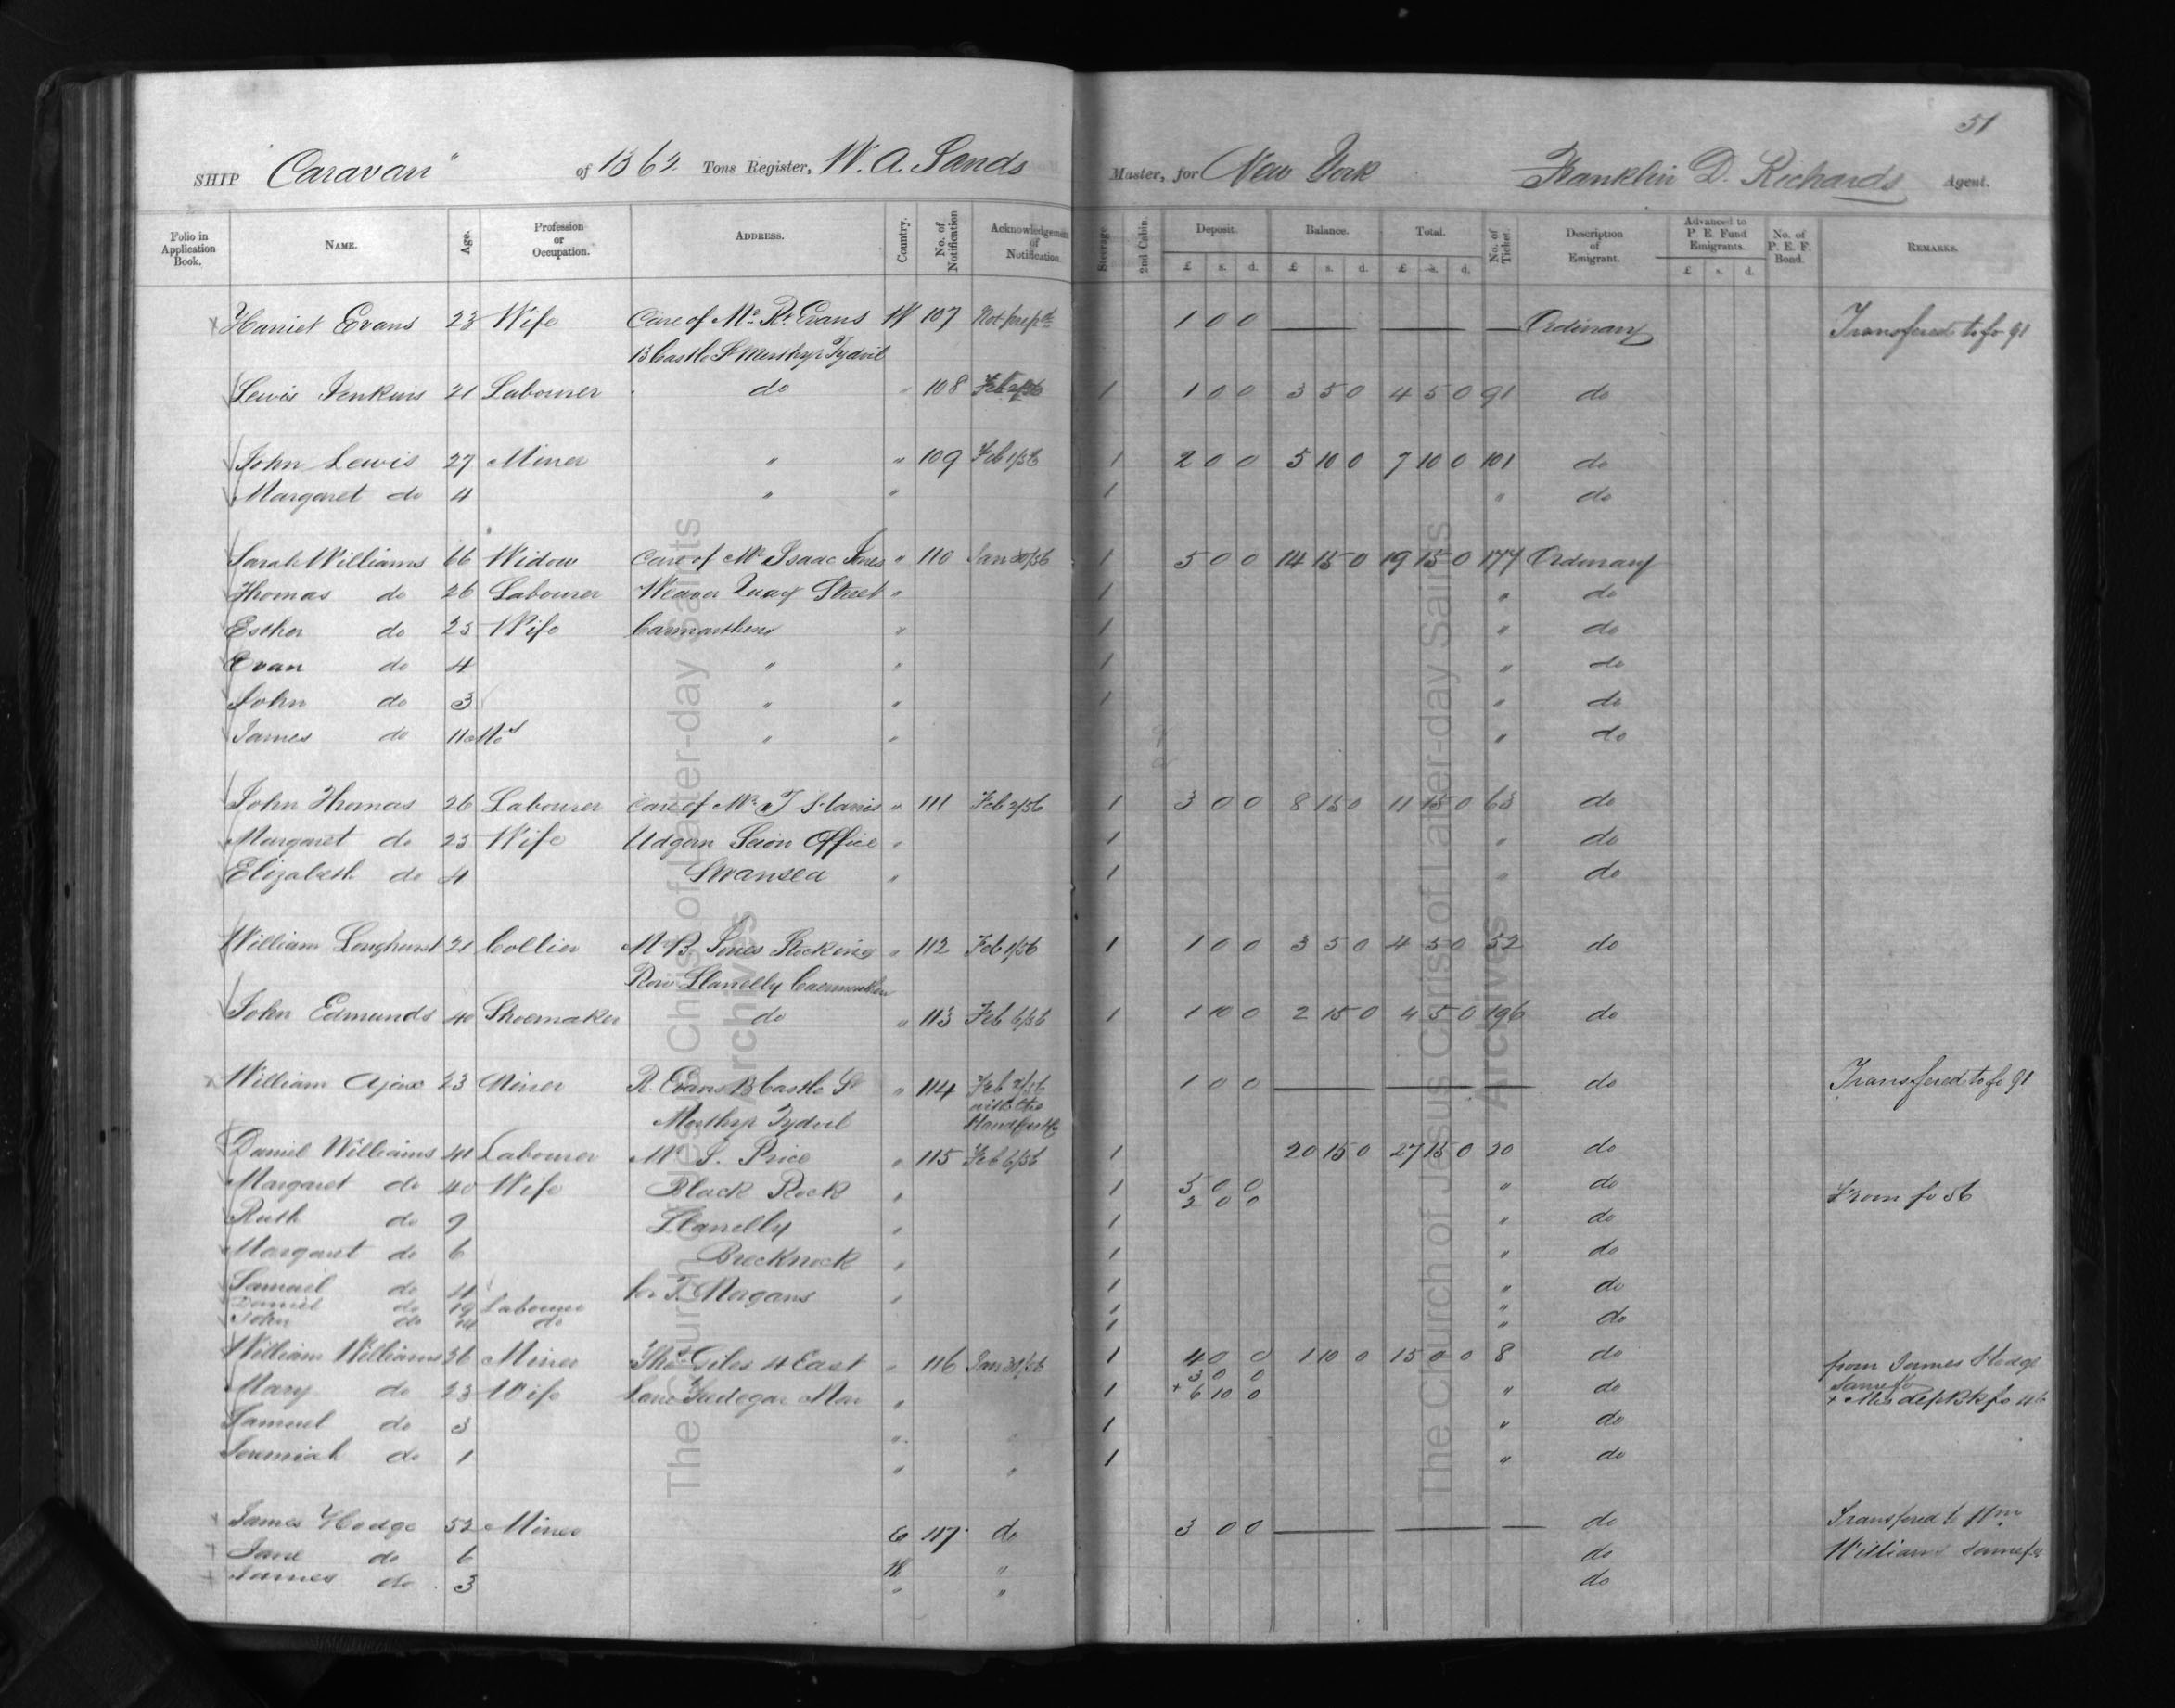 51
SHIP "Caravan" of 1362 Tons Register, W. A. Sands Master, for New York Franklin D. Richards Agent.
Folio in Application Book. NAME. Age. Profession or Occupation. ADDRESS. Country. No. of Notification Acknowledgement of Notification. Steerage 2nd Cabin. Deposit. Balance. Total. No. of Ticket. Description of Emigrant. Advanced to P. E. Fund Emigrants. No. of P. E. F. Bond. REMARKS.
£ s. d. £ s. d. £ s. d. £ s. d.
Harriet Evans 23 Wife Care of Mr. R. Evans W 107 Not prepd 1 0 0 Ordinary Transfered to fo 91
13 Castle St Merthyr Tydvil
Lewis Jenkins 21 Labourer do " 108 Feb 2/56 1 1 0 0 3 5 0 4 5 0 91 do
John Lewis 27 Miner " " 109 Feb 1/56 1 2 0 0 5 10 0 7 10 0 101 do
Margaret do 4 " " 1 " do
Sarah Williams 66 Widow Care of Mr Isaac Jones " 110 Jan 30/56 1 5 0 0 14 15 0 19 15 0 177 Ordinary
Thomas do 26 Labourer Weaver Quay Street " 1 " do
Esther do 25 Wife Carmarthen " 1 " do
Evan do 4 " " 1 " do
John do 3 " " 1 " do
James do 11 Mos " " " do
John Thomas 26 Labourer Care of Mr. T Harris " 111 Feb 2/56 1 3 0 0 8 15 0 11 15 0 63 do
Margaret do 25 Wife Udgorn Seion Office " 1 " do
Elizabeth do 4 Swansea " 1 " do
William Longhurst 21 Collier Mr B. Jones Stocking " 112 Feb 1/56 1 1 0 0 3 5 0 4 5 0 52 do
Row Llanelly Caermarthen
John Edmunds 40 Shoemaker do " 113 Feb 6/56 1 1 10 0 2 15 0 4 5 0 196 do
William Ajax 23 Miner R. Evans 13 Castle St " 114 Feb 2/56 1 0 0 do Transfered to fo 91
with the
Merthyr Tydvil
Daniel Williams 41 Labourer Mr S. Price " 115 Feb 6/56 1 20 15 0 27 15 0 20 do
Margaret do 40 Wife Black Rock " 1 5 0 0 " do From fo 56
2 0 0
Ruth do 9 Llanelly " 1 " do
Margaret do 6 Brecknock " 1 " do
Samuel do 4 for T. Morgans " 1 " do
Daniel do 19 Labourer 1 "
John do 14 do 1 " do
William Williams 36 Miner Thos. Giles 4 East " 116 Jan 31/56 1 4 0 0 1 10 0 15 0 0 8 do from James Hodge
3 0 0 same fo
Mary do 23 Wife Lane Tredegar Mon " 1 + 6 10 0 " do + Mis dep Bk fo 46
Samuel do 3 " 1 " do
Jeremiah do 1 " " 1 " do
James Hodge 52 Miner E 117 do 3 0 0 do Transfered to Wm
Jane do 6 W " do Williams same fo
James do 3 " " do
The Church of Jesus Christ of Latter-day Saints
Archives
The Church of Jesus Christ of Latter-day Saints
Archives